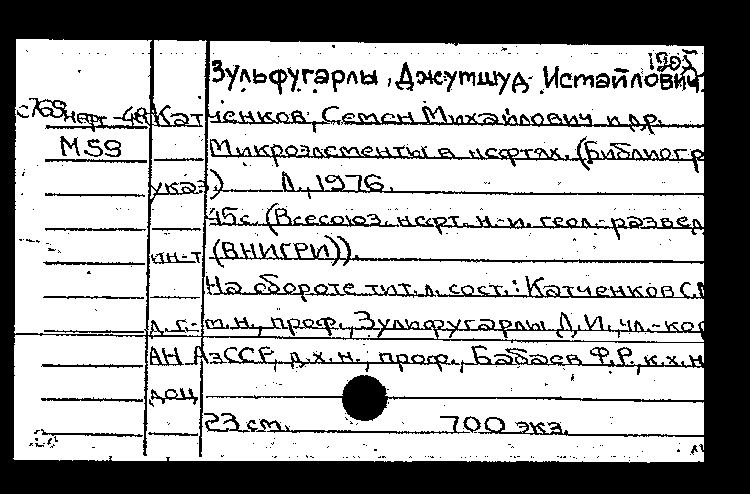 1905
Зульфугарлы, Джутшуд Истайлович.
с769нефт-48 Катченков, Семен Михайлович и др.
М59 Микроэлементы в нефтях. (Библиогр
указ.) Л., 1976.
45с. (Всесоюз. нефт. н.-и. геол.-развед
ин-т (ВНИГРИ)).
На обороте тит. л. сост.: Катченков С.М
д. г.-м.н., проф., Зульфугарлы Д.И., чл.-кор
АН АзССР, д.х.н., проф., Бабаев Ф.Р., к.х.н
доц
23 см. 700 экз.